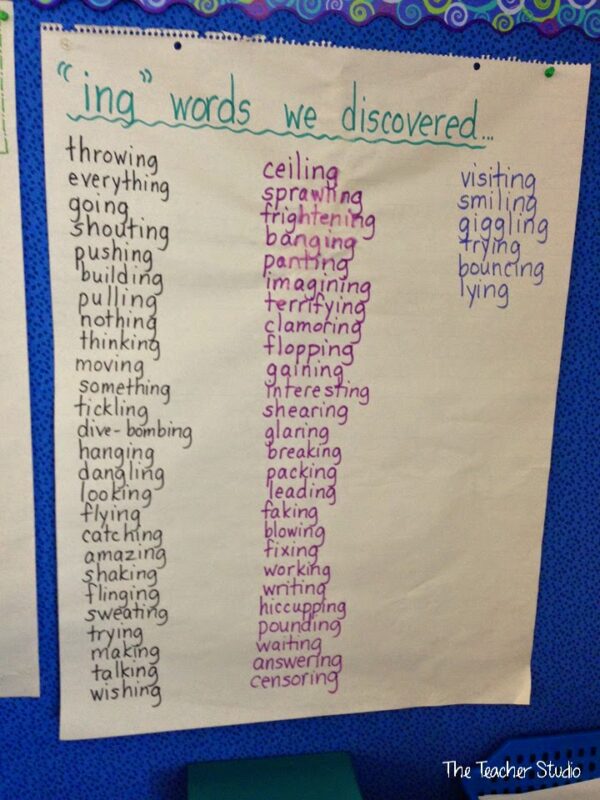 "ing" words we discovered...
throwing
everything
going
shouting
pushing
building
pulling
nothing
thinking
moving
something
tickling
dive-bombing
hanging
dangling
looking
flying
catching
amazing
shaking
flinging
sweating
trying
making
talking
wishing
ceiling
sprawling
frightening
banging
panting
imagining
terrifying
clamoring
flopping
gaining
interesting
shearing
glaring
breaking
packing
leading
faking
blowing
fixing
working
writing
hiccupping
pounding
waiting
answering
censoring
visiting
smiling
giggling
trying
bouncing
lying
The Teacher Studio